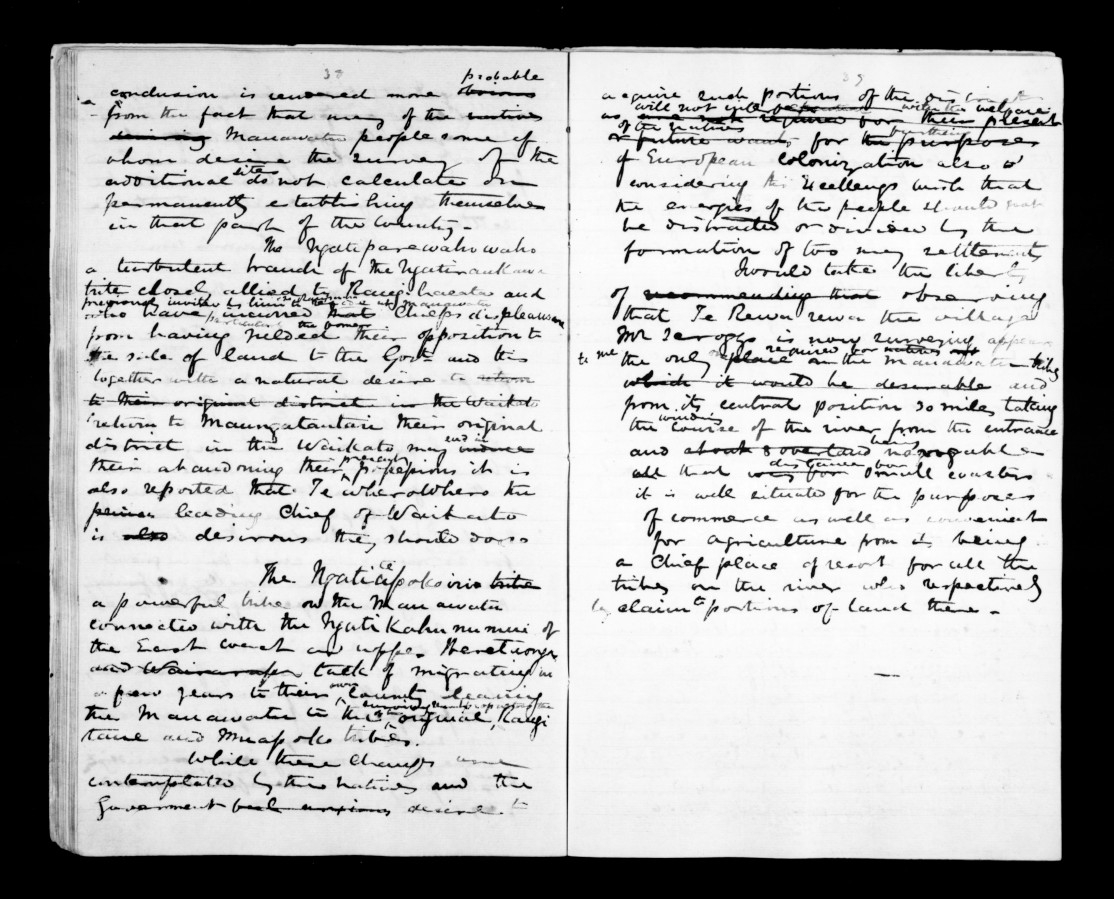 38
probable
conclusion is rendered more obvious
from the fact that many of the natives
desiring Manawatu people some of
whom desire the survey of the
additional site do not calculate on
permanently establishing themselves
in that part of the Country.
The Ngatiparewahowaho
a turbulent branch of the Ngatiraukawa
tribe closely allied to Rangihaeata and
previously invited by him to Manawatu
who have incurred that Chiefs displeasure
from having yielded their opposition to
the sale of land to the Govt and this
together with a natural desire to return
to their original district in the Waikato
return to Maungatautari their original
district in the Waikato may end in induce
their abandoning their present possessions it is
also reported that Te Wherowhero the
leading Chief of Waikato
is also desirous they should do so
The Ngatiapokoiri tribe
a powerful tribe on the Manawatu
connected with the Ngati Kahunumui of
the East coast and upper Heretaonga
and Wairarapa talk of migrating in
a few years to their own Country leaving
the Manawatu to the original Rangi
tane and Muapoko tribes.
While these Changes are
contemplated by the natives and the
Government desire to
39
acquire such portions of the district
will not interfere with the welfare
as are not required for their present
of the natives
or future wants for the purposes
of European colonization also
considering His Excellencys wish that
the energies of the people should not
be distracted or divided by the
formation of too many settlements
I would take the liberty
of recommending that observing
that Te Rewarewa the village
Mr Scroggs is now surveying appears
to me the only place required for natives on the Manawatu
which it would be desirable and
from its central position 30 miles taking
the windings course of the river from the entrance
and about 8 overland navigable
all that distance for small coasters
it is well situated for the purposes
of commerce as well as convenient
for agriculture from its being
a Chief place of resort for all the
tribes on the river who respectively
lay claim to portions of land there.